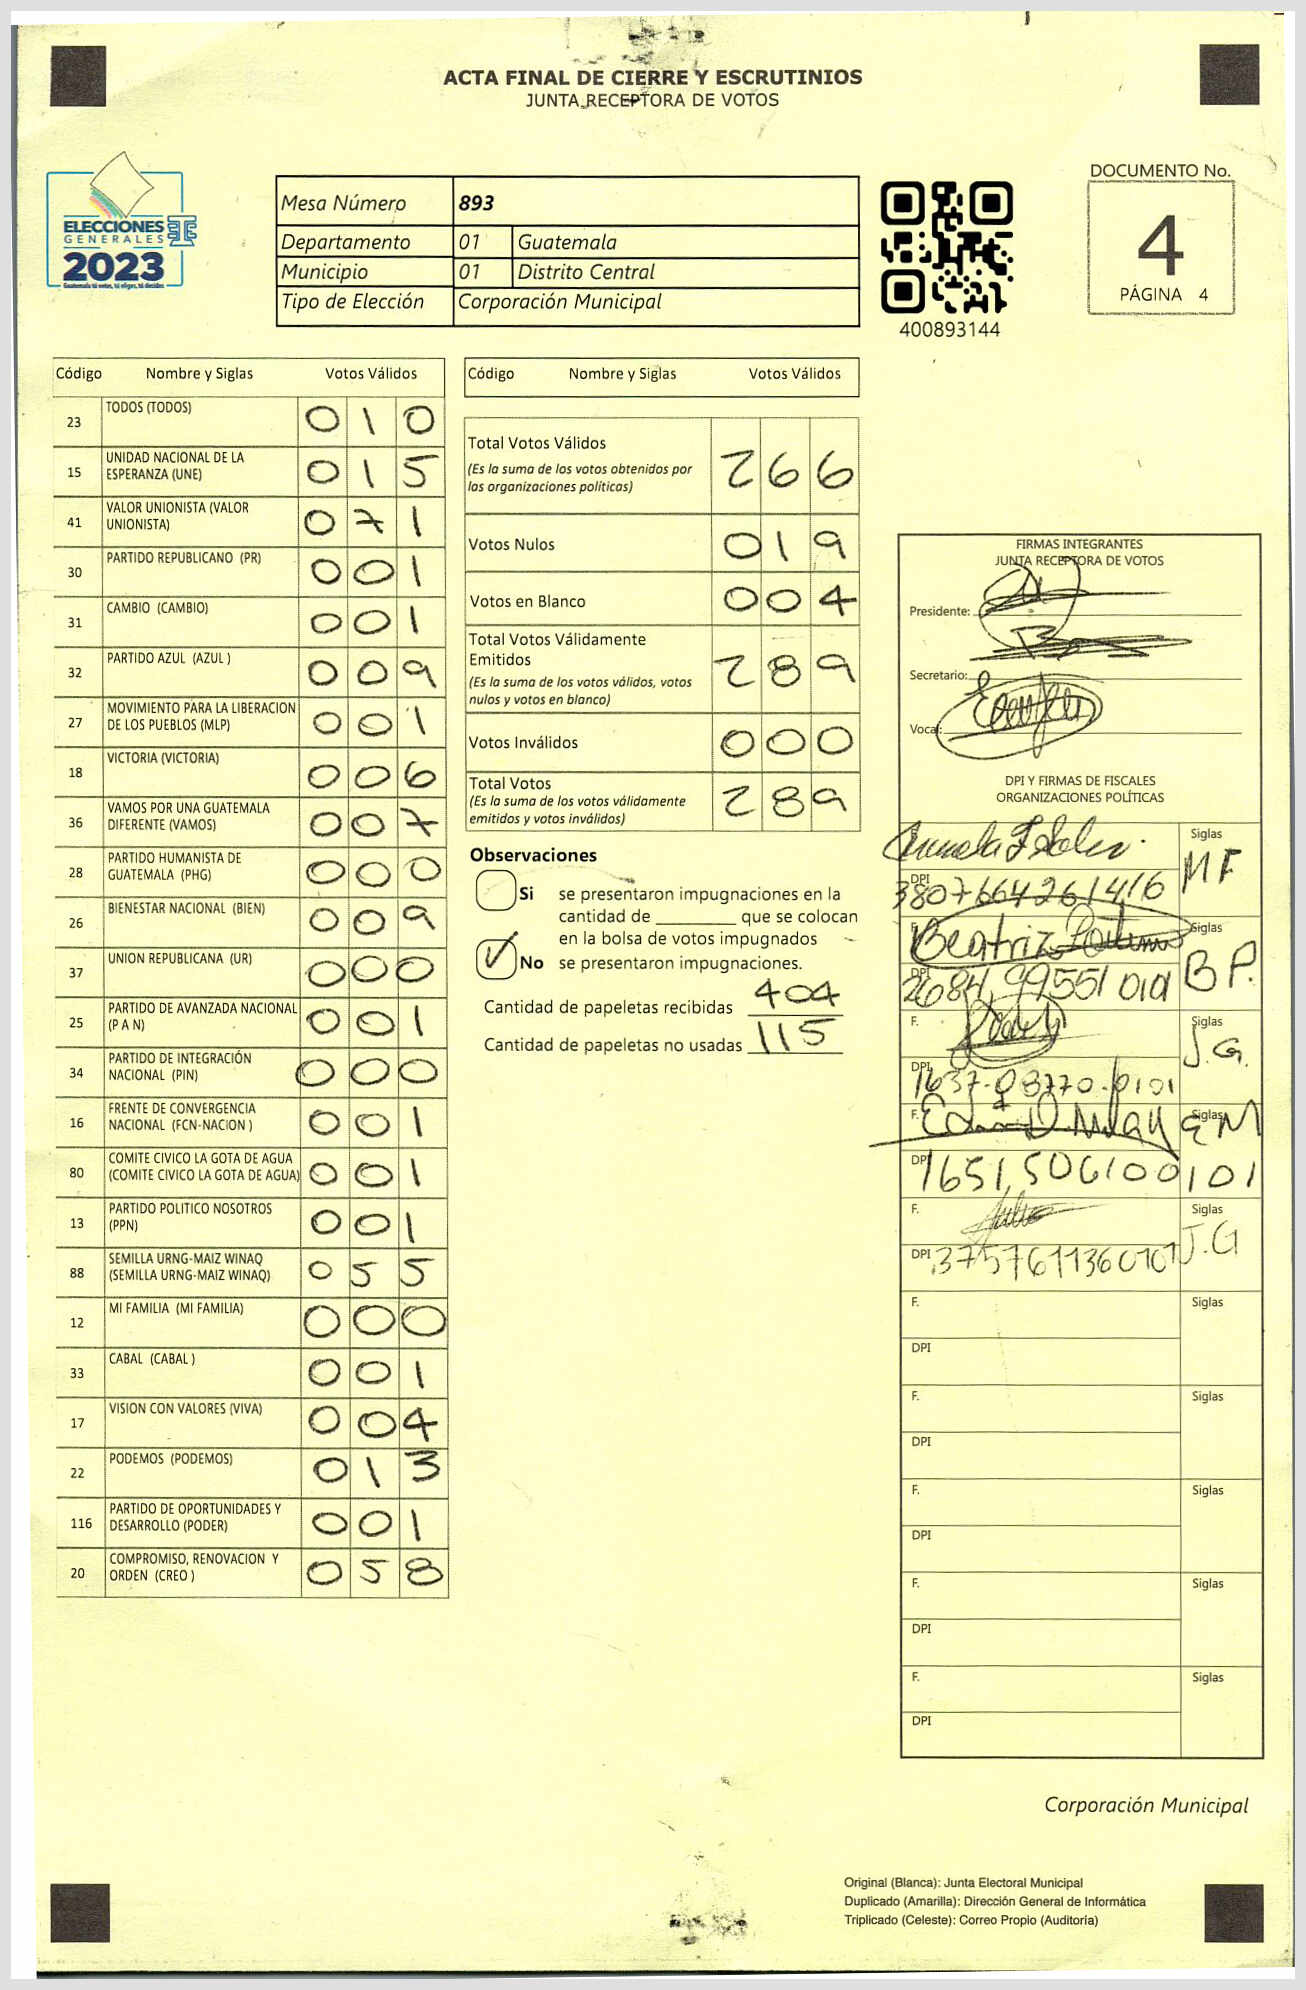 ACTA FINAL DE CIERRE Y ESCRUTINIOS
JUNTA RECEPTORA DE VOTOS
ELECCIONES
GENERALES
2023
Guatemala tú votas, tú eliges, tú decides
Mesa Número 893
Departamento 01 Guatemala
Municipio 01 Distrito Central
Tipo de Elección Corporación Municipal
400893144
DOCUMENTO No.
4
PÁGINA 4
Código Nombre y Siglas Votos Válidos
23 TODOS (TODOS) 0 1 0
15 UNIDAD NACIONAL DE LA ESPERANZA (UNE) 0 1 5
41 VALOR UNIONISTA (VALOR UNIONISTA) 0 7 1
30 PARTIDO REPUBLICANO (PR) 0 0 1
31 CAMBIO (CAMBIO) 0 0 1
32 PARTIDO AZUL (AZUL ) 0 0 9
27 MOVIMIENTO PARA LA LIBERACION DE LOS PUEBLOS (MLP) 0 0 1
18 VICTORIA (VICTORIA) 0 0 6
36 VAMOS POR UNA GUATEMALA DIFERENTE (VAMOS) 0 0 7
28 PARTIDO HUMANISTA DE GUATEMALA (PHG) 0 0 0
26 BIENESTAR NACIONAL (BIEN) 0 0 9
37 UNION REPUBLICANA (UR) 0 0 0
25 PARTIDO DE AVANZADA NACIONAL (P A N) 0 0 1
34 PARTIDO DE INTEGRACIÓN NACIONAL (PIN) 0 0 0
16 FRENTE DE CONVERGENCIA NACIONAL (FCN-NACION ) 0 0 1
80 COMITE CIVICO LA GOTA DE AGUA (COMITE CIVICO LA GOTA DE AGUA) 0 0 1
13 PARTIDO POLITICO NOSOTROS (PPN) 0 0 1
88 SEMILLA URNG-MAIZ WINAQ (SEMILLA URNG-MAIZ WINAQ) 0 5 5
12 MI FAMILIA (MI FAMILIA) 0 0 0
33 CABAL (CABAL ) 0 0 1
17 VISION CON VALORES (VIVA) 0 0 4
22 PODEMOS (PODEMOS) 0 1 3
116 PARTIDO DE OPORTUNIDADES Y DESARROLLO (PODER) 0 0 1
20 COMPROMISO, RENOVACION Y ORDEN (CREO ) 0 5 8
Código Nombre y Siglas Votos Válidos
Total Votos Válidos 2 6 6
(Es la suma de los votos obtenidos por
las organizaciones políticas)
Votos Nulos 0 1 9
Votos en Blanco 0 0 4
Total Votos Válidamente
Emitidos 2 8 9
(Es la suma de los votos válidos, votos
nulos y votos en blanco)
Votos Inválidos 0 0 0
Total Votos 2 8 9
(Es la suma de los votos válidamente
emitidos y votos inválidos)
Observaciones
Si se presentaron impugnaciones en la
cantidad de que se colocan
en la bolsa de votos impugnados
No se presentaron impugnaciones.
Cantidad de papeletas recibidas 404
Cantidad de papeletas no usadas 115
FIRMAS INTEGRANTES
JUNTA RECEPTORA DE VOTOS
Presidente:
Secretario:
Vocal:
DPI Y FIRMAS DE FISCALES
ORGANIZACIONES POLÍTICAS
Siglas MF
DPI 3807664261416
F. Beatriz Siglas B P.
DPI 2684 99551 0101
F. Siglas J.G.
DPI 1637-08770-0101
F. Siglas E M
DPI 1651 506100101
F. Siglas J.G
DPI 3757611360101
F. Siglas
DPI
F. Siglas
DPI
F. Siglas
DPI
F. Siglas
DPI
F. Siglas
DPI
Corporación Municipal
Original (Blanca): Junta Electoral Municipal
Duplicado (Amarilla): Dirección General de Informática
Triplicado (Celeste): Correo Propio (Auditoría)